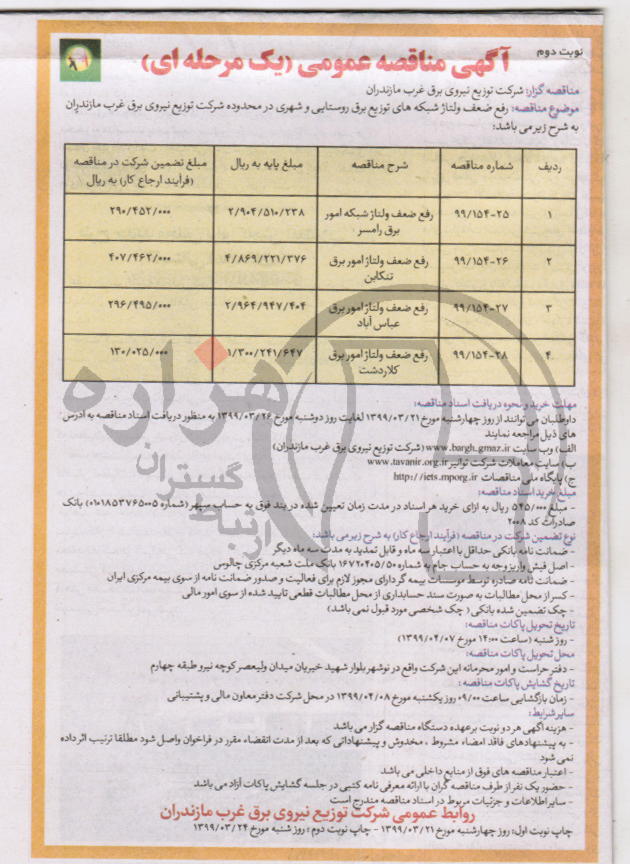 نوبت دوم
آگهی مناقصه عمومی (یک مرحله ای)
مناقصه گزار: شرکت توزیع نیروی برق غرب مازندران
موضوع مناقصه: رفع ضعف ولتاژ شبکه های توزیع برق روستایی و شهری در محدوده شرکت توزیع نیروی برق غرب مازندران
به شرح زیر می باشد:
ردیف شماره مناقصه شرح مناقصه مبلغ پایه به ریال مبلغ تضمین شرکت در مناقصه (فرآیند ارجاع کار) به ریال
۱ ۹۹/۱۵۴-۲۵ رفع ضعف ولتاژ شبکه امور برق رامسر ۲/۹۰۴/۵۱۰/۲۳۸ ۲۹۰/۴۵۲/۰۰۰
۲ ۹۹/۱۵۴-۲۶ رفع ضعف ولتاژ امور برق تنکابن ۴/۸۶۹/۲۲۱/۳۷۶ ۴۰۷/۴۶۲/۰۰۰
۳ ۹۹/۱۵۴-۲۷ رفع ضعف ولتاژ امور برق عباس آباد ۲/۹۶۴/۹۴۷/۴۰۴ ۲۹۶/۴۹۵/۰۰۰
۴ ۹۹/۱۵۴-۲۸ رفع ضعف ولتاژ امور برق کلاردشت ۱/۳۰۰/۲۴۱/۶۴۷ ۱۳۰/۰۲۵/۰۰۰
مهلت خرید و نحوه دریافت اسناد مناقصه:
داوطلبان می توانند از روز چهارشنبه مورخ ۱۳۹۹/۰۳/۲۱ لغایت روز دوشنبه مورخ ۱۳۹۹/۰۳/۲۶ به منظور دریافت اسناد مناقصه به آدرس
های ذیل مراجعه نمایند
الف) وب سایت www.bargh_gmaz.ir (شرکت توزیع نیروی برق غرب مازندران)
ب) سایت معاملات شرکت توانیر www.tavanir.org.ir
ج) پایگاه ملی مناقصات http://iets.mporg.ir
مبلغ خرید اسناد مناقصه:
- مبلغ ۵۴۵/۰۰۰ ریال به ازای خرید هر اسناد در مدت زمان تعیین شده در بند فوق به حساب سپهر (شماره ۰۱۰۱۸۵۳۷۶۵۰۰۵) بانک
صادرات کد ۲۰۰۸
نوع تضمین شرکت در مناقصه (فرآیند ارجاع کار) به شرح زیر می باشد:
- ضمانت نامه بانکی حداقل با اعتبار سه ماه و قابل تمدید به مدت سه ماه دیگر
- اصل فیش واریز وجه به حساب جام به شماره ۱۶۷۲۰۲۰۵/۵۰ بانک ملت شعبه مرکزی چالوس
- ضمانت نامه صادره توسط موسسات بیمه گر دارای مجوز لازم برای فعالیت و صدور ضمانت نامه از سوی بیمه مرکزی ایران
- کسر از محل مطالبات به صورت سند حسابداری از محل مطالبات قطعی تایید شده از سوی امور مالی
- چک تضمین شده بانکی ( چک شخصی مورد قبول نمی باشد)
تاریخ تحویل پاکات مناقصه:
- روز شنبه (ساعت ۱۴:۰۰ مورخ ۱۳۹۹/۰۴/۰۷)
محل تحویل پاکات مناقصه:
- دفتر حراست و امور محرمانه این شرکت واقع در نوشهر بلوار شهید خیریان میدان ولیعصر کوچه نیرو طبقه چهارم
تاریخ گشایش پاکات مناقصه :
- زمان بازگشایی ساعت ۰۹/۰۰ روز یکشنبه مورخ ۱۳۹۹/۰۴/۰۸ در محل شرکت دفتر معاون مالی و پشتیبانی
سایر شرایط:
- هزینه آگهی هر دو نوبت بر عهده دستگاه مناقصه گزار می باشد
- به پیشنهادهای فاقد امضاء مشروط ، مخدوش و پیشنهاداتی که بعد از مدت انقضاء مقرر در فراخوان واصل شود مطلقا ترتیب اثر داده
نمی شود
- اعتبار مناقصه های فوق از منابع داخلی می باشد
- حضور یک نفر از طرف مناقصه گران با ارائه معرفی نامه کتبی در جلسه گشایش پاکات آزاد می باشد
- سایر اطلاعات و جزئیات مربوط در اسناد مناقصه مندرج است
روابط عمومی شرکت توزیع نیروی برق غرب مازندران
چاپ نوبت اول: روز چهارشنبه مورخ ۱۳۹۹/۰۳/۲۱ - چاپ نوبت دوم : روز شنبه مورخ ۱۳۹۹/۰۳/۲۴
هزاره
گستران
ارتباط